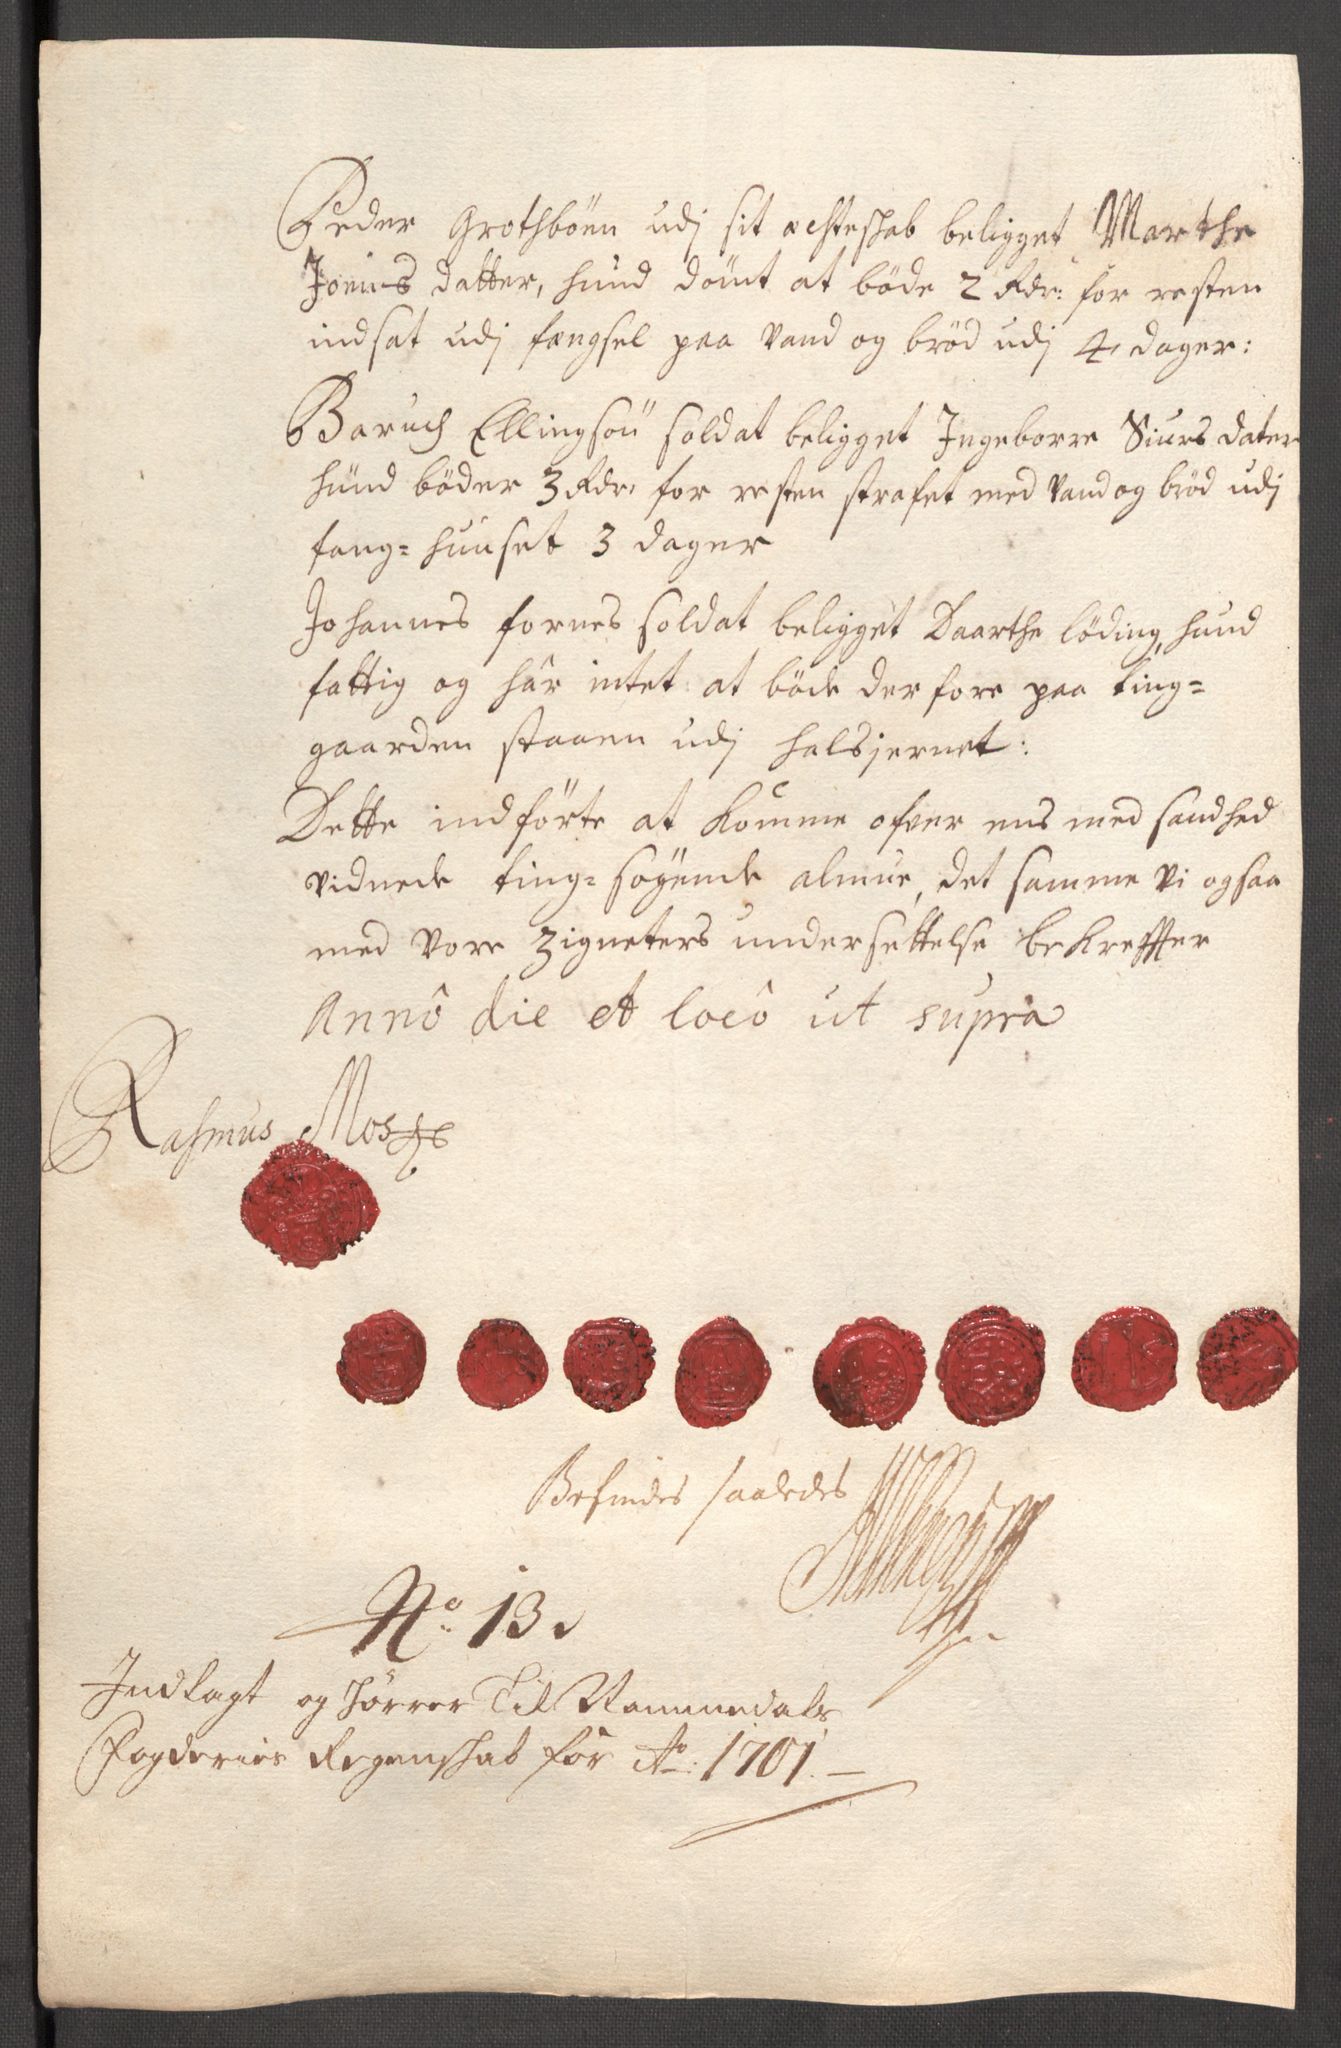 Peder Grothböen udj sit echteskab beligget Marthe
Jonnes datter, hund dömt at böde 2 Rdr: for resten
indsat udj fængsel paa vand og bröd udj 4 dager:
Baruch Ellingsön soldat beligget Ingeborre Siurs dater
hund böder 3 Rdr: for resten straffet med vand og bröd udj
fang=huuset 3 dager
Johannes fornes soldat beligget Daarthe löding, hund
fattig og har intet at böde derfore paa ting=
gaarden staaen udj halsjernet:
Dette indförte at komme ofver ens med sandhed
vidnede ting=sögende almue, det samme vi ogsaa
med vore zigneters undersettelse bekreffter
Annô die et locô ut supra
Rasmus
Befindes saaledes
No. 13.
Indlagt og hörrer Til Nammedals
Fogderies Regenskab for Ao: 1701.